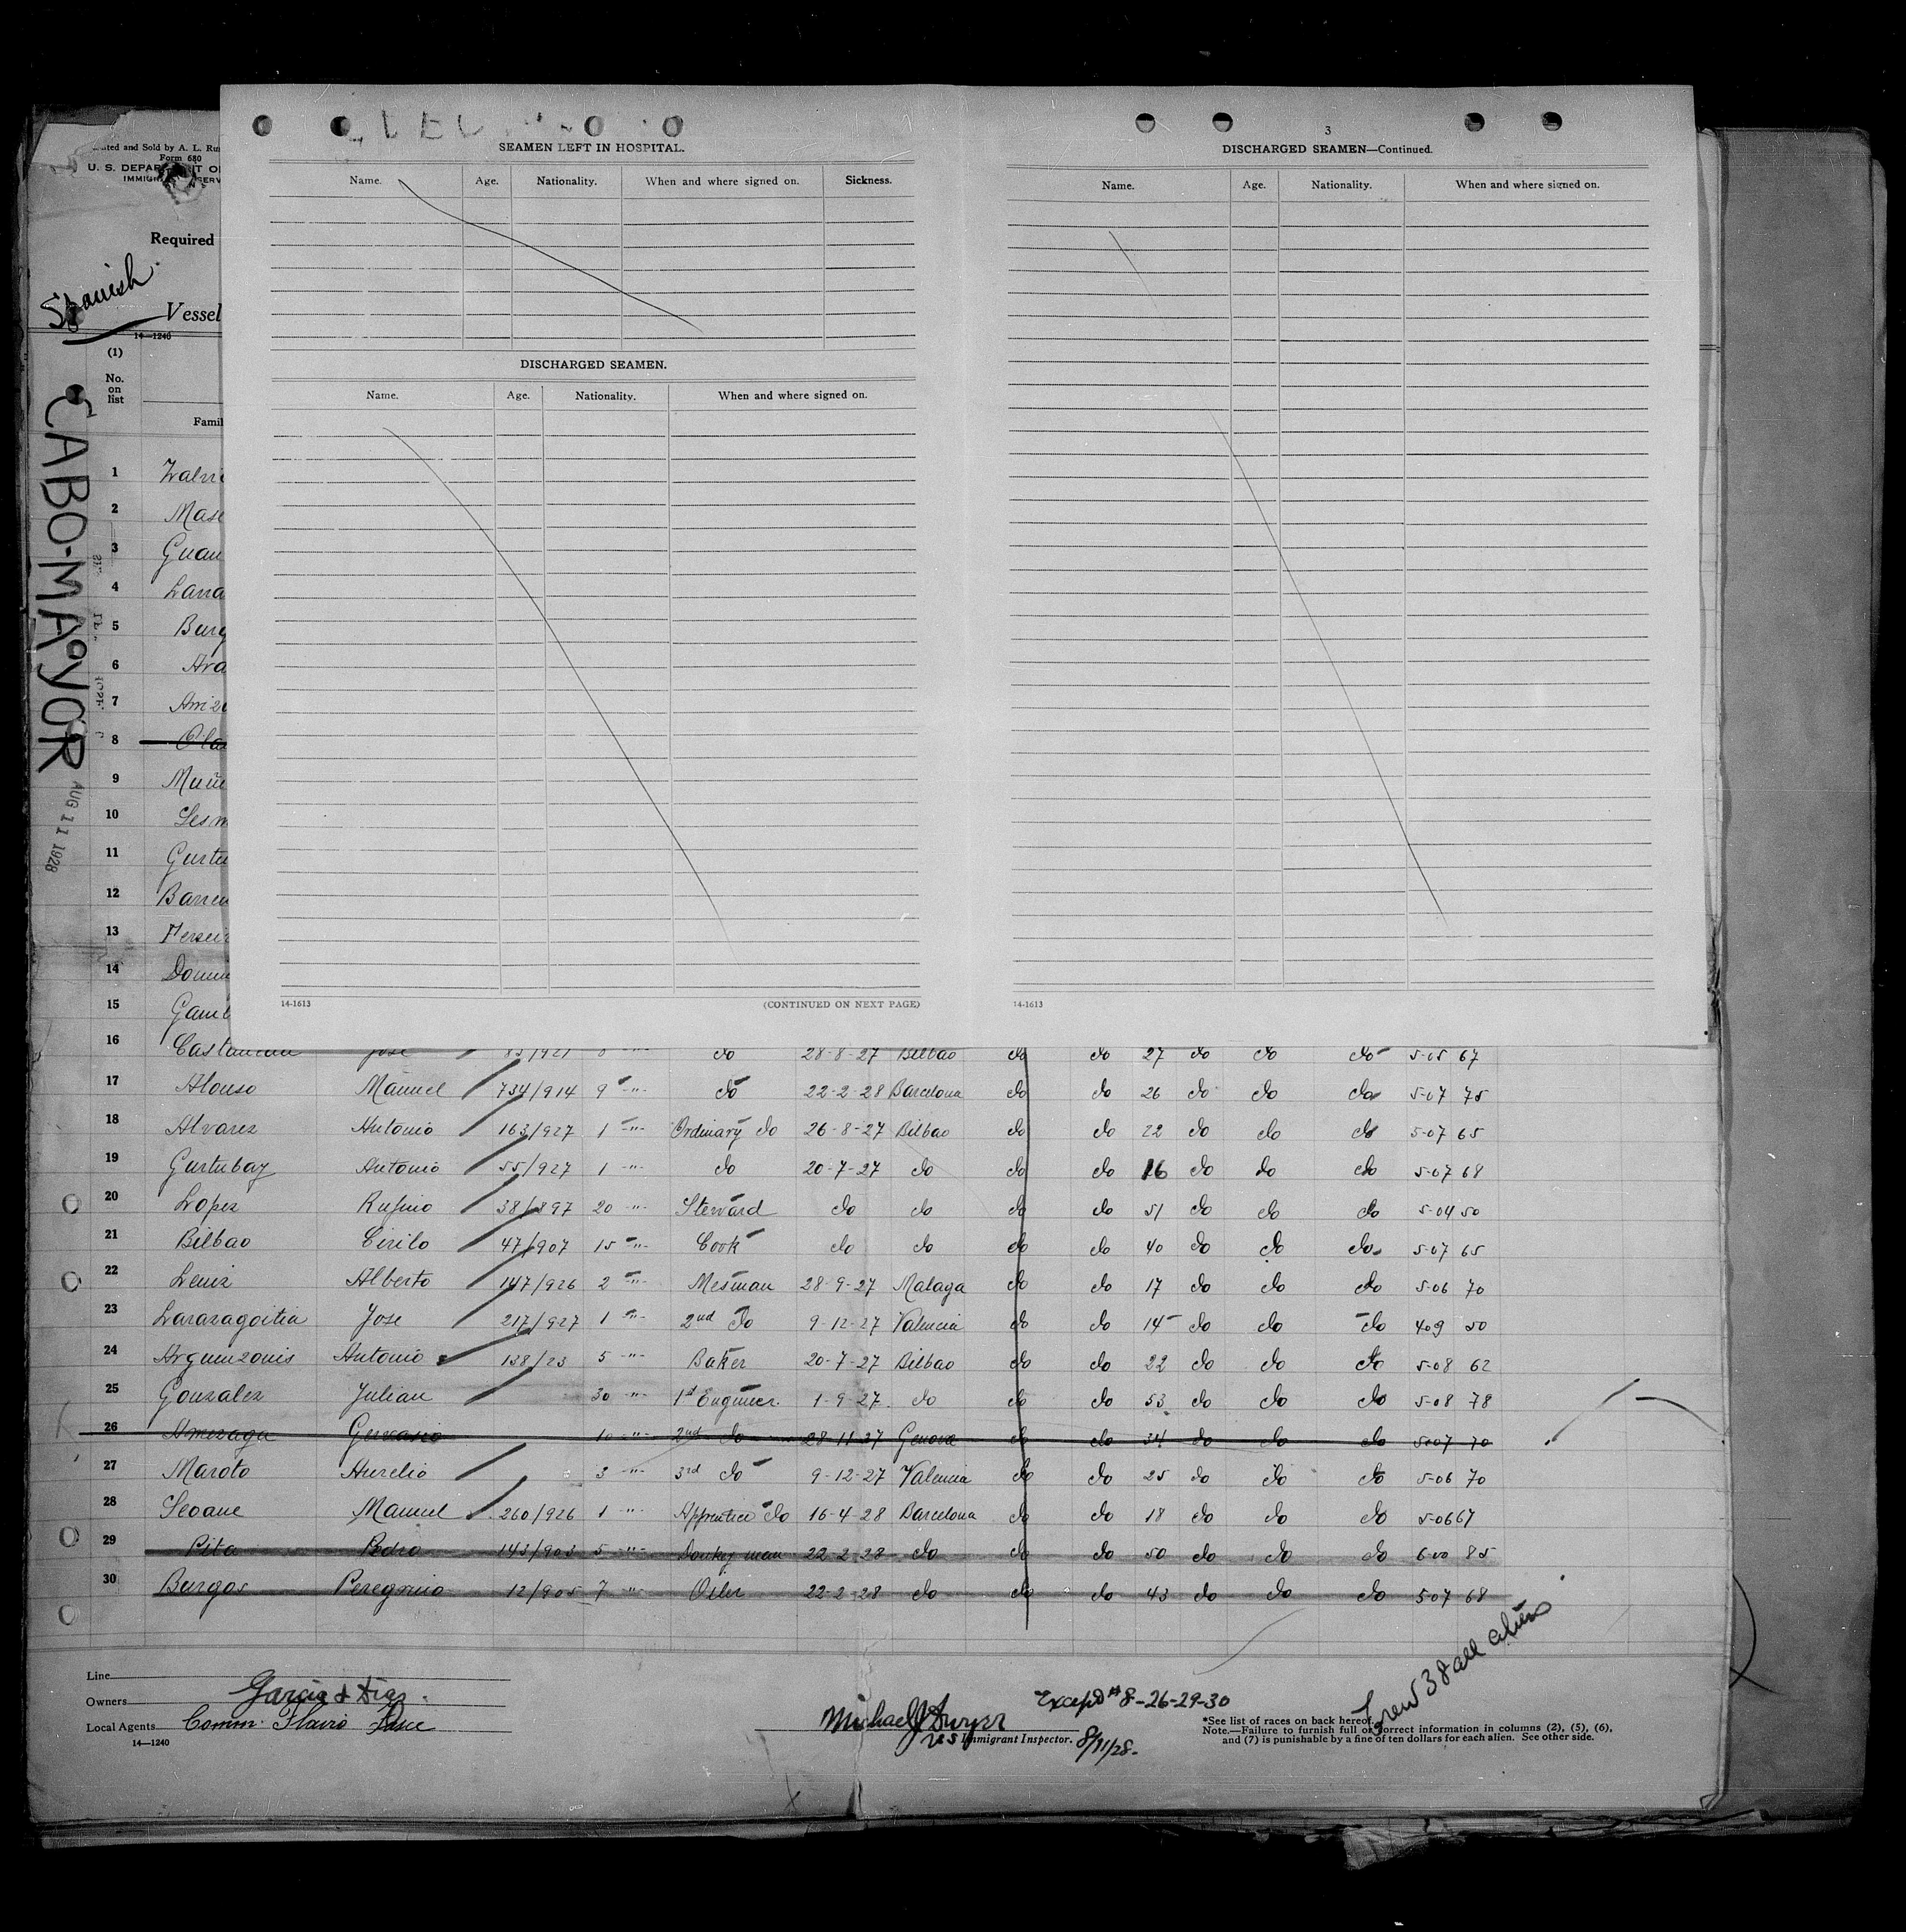 3
SEAMEN LEFT IN HOSPITAL.
Name. Age. Nationality. When and where signed on. Sickness.
DISCHARGED SEAMEN.
Name. Age. Nationality. When and where signed on.
14-1613 (CONTINUED ON NEXT PAGE)
DISCHARGED SEAMEN—Continued.
Name. Age. Nationality. When and where signed on.
14-1613
and Sold by A. L.
Form 680
U. S.
Required
Spanish
Vessel
14—1240
(1)
No.
on
list
CABO-MAYOR
AUG 11 1928
1
2
3
4
5
6
7
8
9
10
11
12
13
14
15
16 Jose do 28-8-27 Bilbao do do 27 do do do 5-05 67
17 Alonso Manuel 734/914 9 -"- do 22-2-28 Barcelona do do 26 do do do 5-07 75
18 Alvarez Antonio 163/927 1 -"- Ordinary do 26-8-27 Bilbao do do 22 do do do 5-07 65
19 Gurtubay Antonio 55/927 1 -"- do 20-7-27 do do do 16 do do do 5-07 68
20 Lopez Rufino 38/897 20 -"- Steward do do do do 51 do do do 5-04 50
21 Bilbao Cirilo 47/907 15 -"- Cook do do do do 40 do do do 5-07 65
22 Alberto 147/926 2 -"- Mesman 28-9-27 Malaga do do 17 do do do 5-06 70
23 Larazagoitia Jose 217/927 1 -"- 2nd do 9-12-27 Valencia do do 14 do do do 409 50
24 Antonio 138/23 5 -"- Baker 20-7-27 Bilbao do do 22 do do do 5-08 62
25 Gonzalez Julian 30 -"- 1st Engineer. 1-9-27. do do do 53 do do do 5-08 78
26 Amezaga Gervasio 10 -"- 2nd do 28-11-27 Genova do do 34 do do do 5-07 70
27 Maroto Aurelio 3 -"- 3rd do 9-12-27 Valencia do do 25 do do do 5-06 70
28 Seoane Manuel 260/926 1 -"- Apprentice do 16-4-28 Barcelona do do 18 do do do 5-06 67
29 Pita Pedro 143/903 5 -"- Donkey man 22-2-28 do do do 50 do do do 6-00 85
30 Burgos Peregrino 12/905 7 -"- Oiler 22-2-28 do do do 43 do do do 5-07 68
Crew 38 all aliens
Line
Owners Garcia & Diaz.
Local Agents Comm. Flavio
14—1240
Except # 8-26-29-30
Michael J Dwyer
US Immigrant Inspector. 8/11/28.
*See list of races on back hereof.
Note.—Failure to furnish full or correct information in columns (2), (5), (6),
and (7) is punishable by a fine of ten dollars for each alien. See other side.